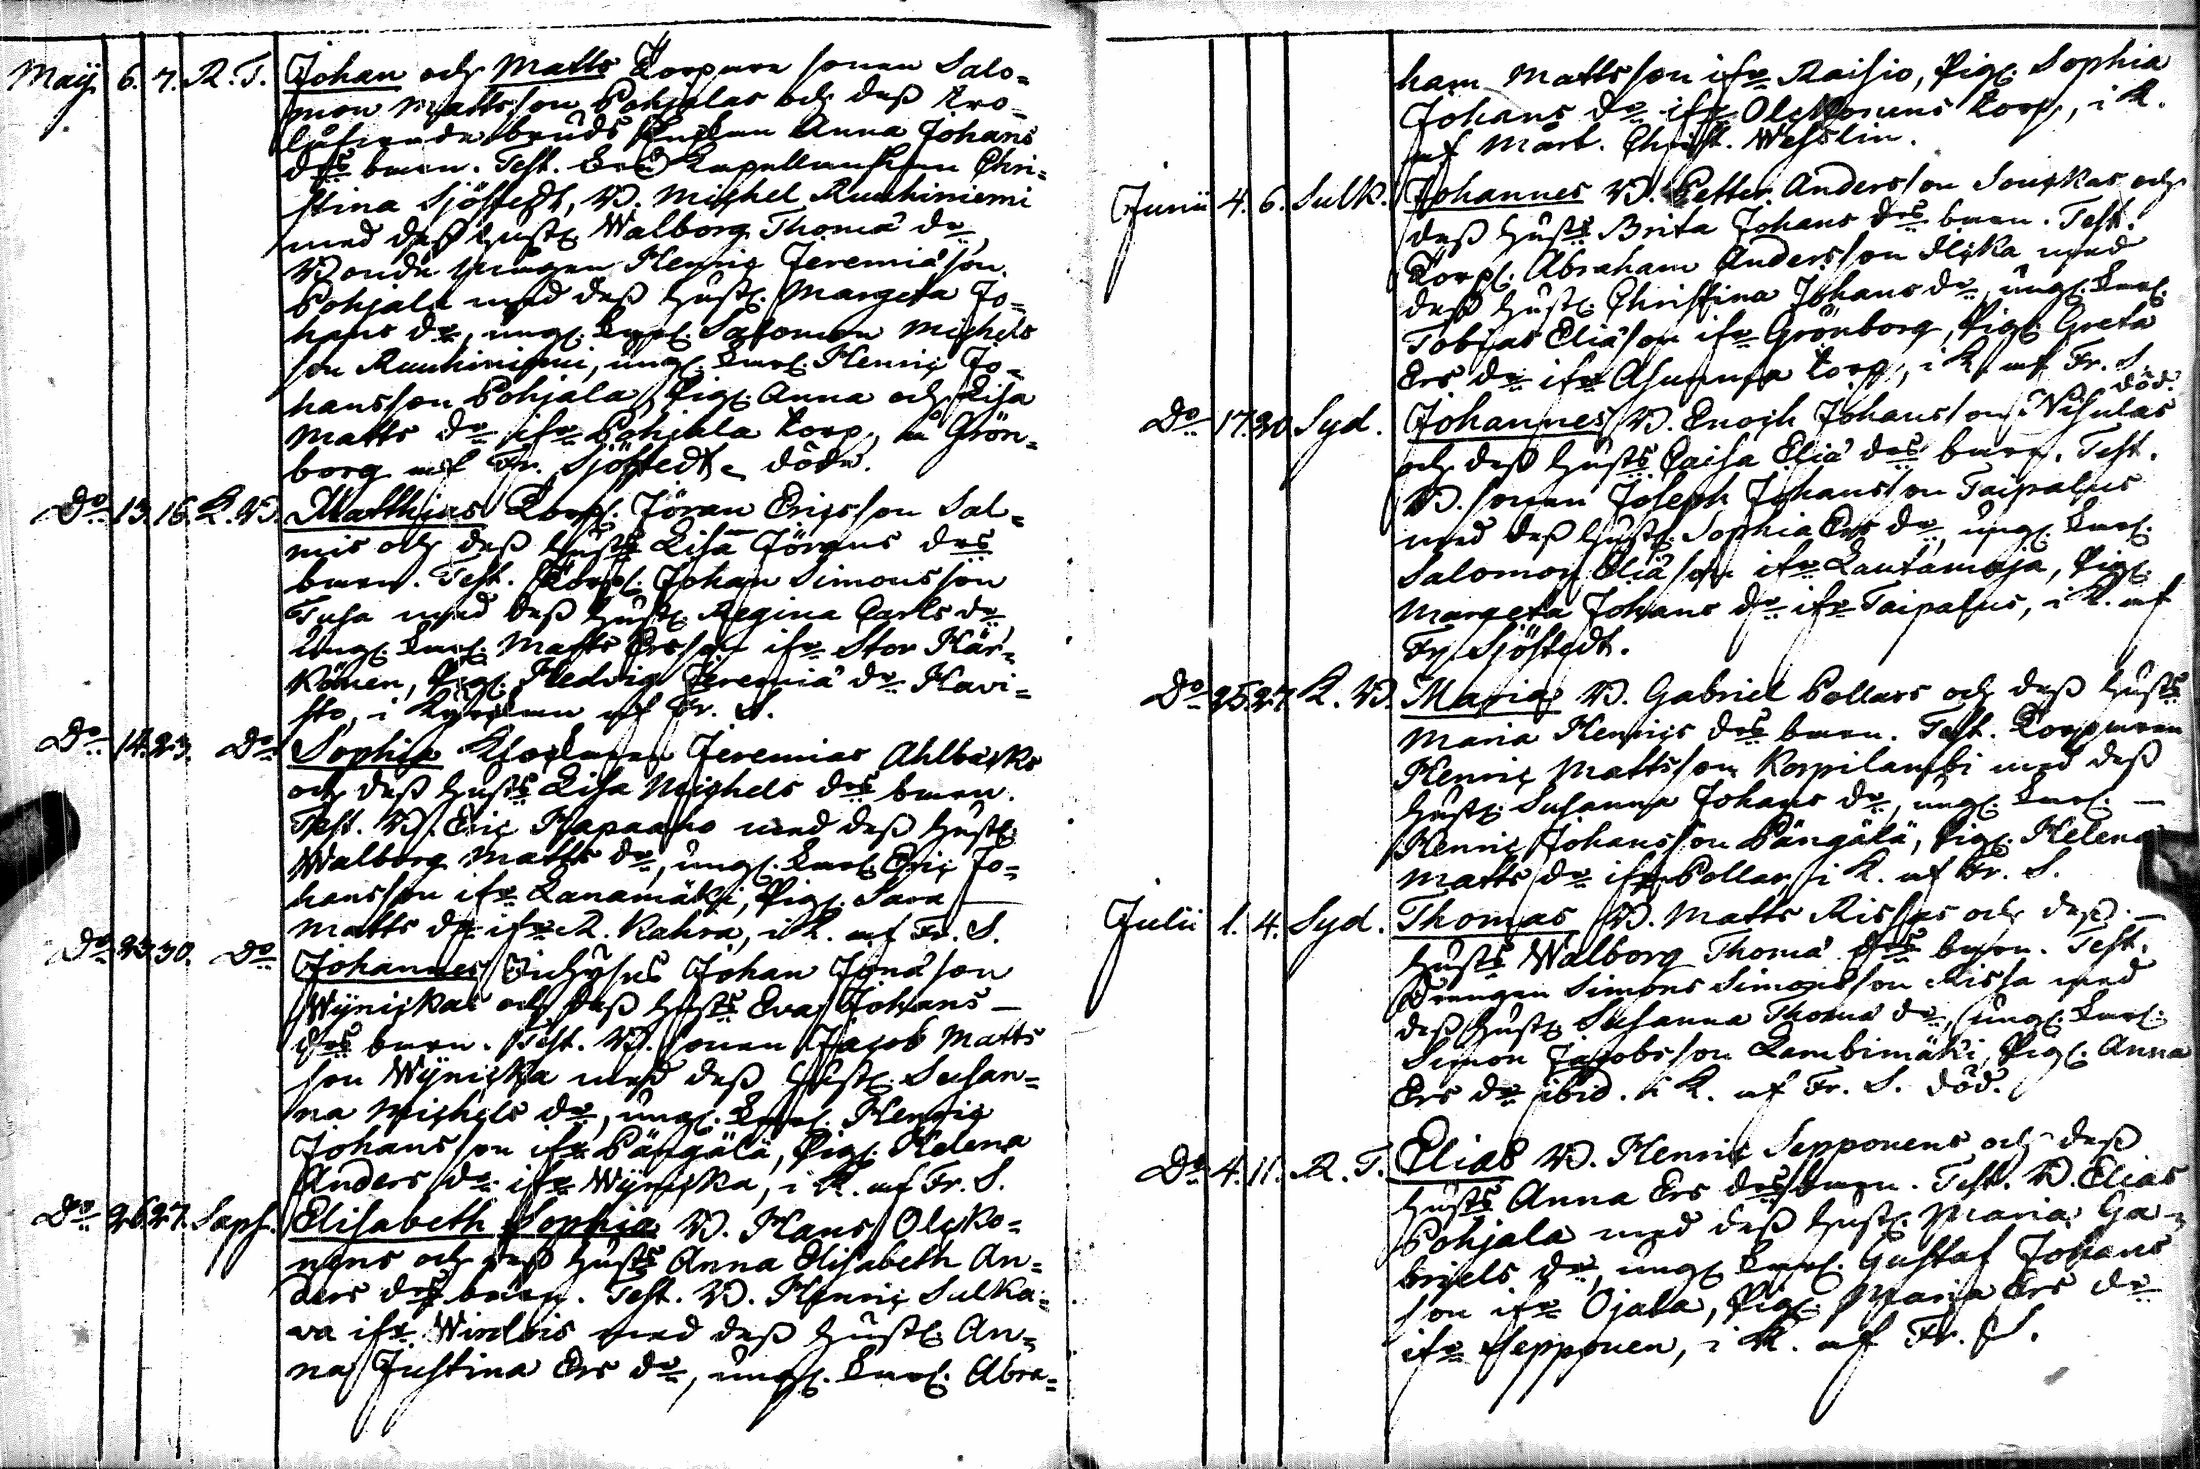 Maij. 6. 7. R. T. Johan och Matts Torpare sonen Salo=
mon Mattsson Pohjalas och dess tro=
låfwade bruds Enkan Anna Johans
drs barn. Test. Kapellanskan Chri=
stina Sjöstedt, B. Michel Ruuhiniemi
med dess hust. Walborg Thomæ dr
Bonde mågen Henric Jeremiæson
Pohjala med dess hust. Margeta Jo=
hans dr, ung. Karl. Salomon Michels
son Ruuhiniemi, ung. Karl. Henric Jo=
hansson Pohjala, Pig. Anna och Lisa
Matts dr ifr Pohjala torp, på Grön=
borg af Fr. Sjöstedt. döde.
Do 13. 16. K. B. Matthias Torp. Jöran Ericsson Sal=
mis och dess husts Lisa Jörans drs
barn. Test. Torp. Johan Simonsson
Tusa med dess hust. Regina Carls dr
ung. Karl. Matts Ersson ifr Stor Här=
könen, Pig. Hedvig Jeremiæ dr Havi=
sto, i Kyrckan af Fr. S.
Do 14. 23. Do Sophia Klockaren Jeremias Ahlbäcks
och dess husts Lisa Michels drs barn.
Test. B. Eric Hapaaho med dess hust.
Walborg Matts dr, ung. Karl. Eric Jo=
hansson ifr Lanamäki, Pig. Sara
Matts dr ifr R. Kahra, i K. af Fr. S.
Do 23. 30. Do Johannes Inhyses Johan Jonæson
Wynickas och dess husts Eva Johans
drs barn. Test. B. sonen Jacob Matts
son Wynicka med dess hust. Susan=
na Michels dr, ung. Karl. Henric
Johansson ifr Pängälä, Pig. Helena
Anders dr ifr Wynicka, i K. af Fr. S.
Do 26. 27. Saph. Elisabeth Sophia B. Hans Olcko=
nens och dess husts Anna Elisabeth An=
ders drs barn. Test. B. Henric Sulka=
va ifr Wirdois med dess hust. An=
na Justina Ers dr, ung. Karl. Abra=
ham Mattsson ifr Raisio, Pig. Sophia
Johans dr ifr Olckonens torp, i K.
af Mart. Christ. Wesslin.
Junii 4. 6. Sulk. Johannes B. Petter Andersson Souckas och
dess husts Brita Johans drs barn. Test.
Torp. Abraham Andersson Ilcka med
dess hust. Christina Johans dr, ung. Karl.
Tobias Eliæson ifr Grönborg, Pig. Greta
Ers dr ifr Asunma torp, i K. af Fr. S.
Do 17. 30. Syd. Johannes B. Enoch Johansson Nisulas död.
och dess husts Caisa Eliæ drs barn. Test.
B. sonen Joseph Johansson Taipalus
med dess hust. Sophia Ers dr, ung. Karl.
Salomon Eliæson ifr Lautamaja, Pig.
Margeta Johans dr ifr Taipalus, i K. af
Fr. Sjöstedt.
Do 25. 27. K. B. Maria B. Gabriel Pollars och dess husts
Maria Henrics drs barn. Test. Torparen
Henric Mattsson Korpilambi med dess
hust. Susanna Johans dr, ung. Karl.
Henric Johansson Pängälä, Pig. Helena
Matts dr ifr Pollar, i K. af Fr. S.
Julii 1. 4. Syd. Thomas B. Matts Rissas och dess
husts Walborg Thomæ drs barn. Test.
Drängen Simons Simonsson Rissa med
dess hust. Susanna Thomæ dr, ung. Karl.
Simon Jacobsson Lambimäki, Pig. Anna
Ers dr ibid. i K. af Fr. S. död.
Do 4. 11. R. T. Elias B. Henric Sepponens och dess
husts Anna Ers drs barn. Test. B. Elias
Pohjala med dess hust. Maria Ga=
briels dr, ung. Karl. Gustaf Johans
son ifr Ojala, Pig. Maria Ers dr
ifr Sepponen, i K. af Fr. S.